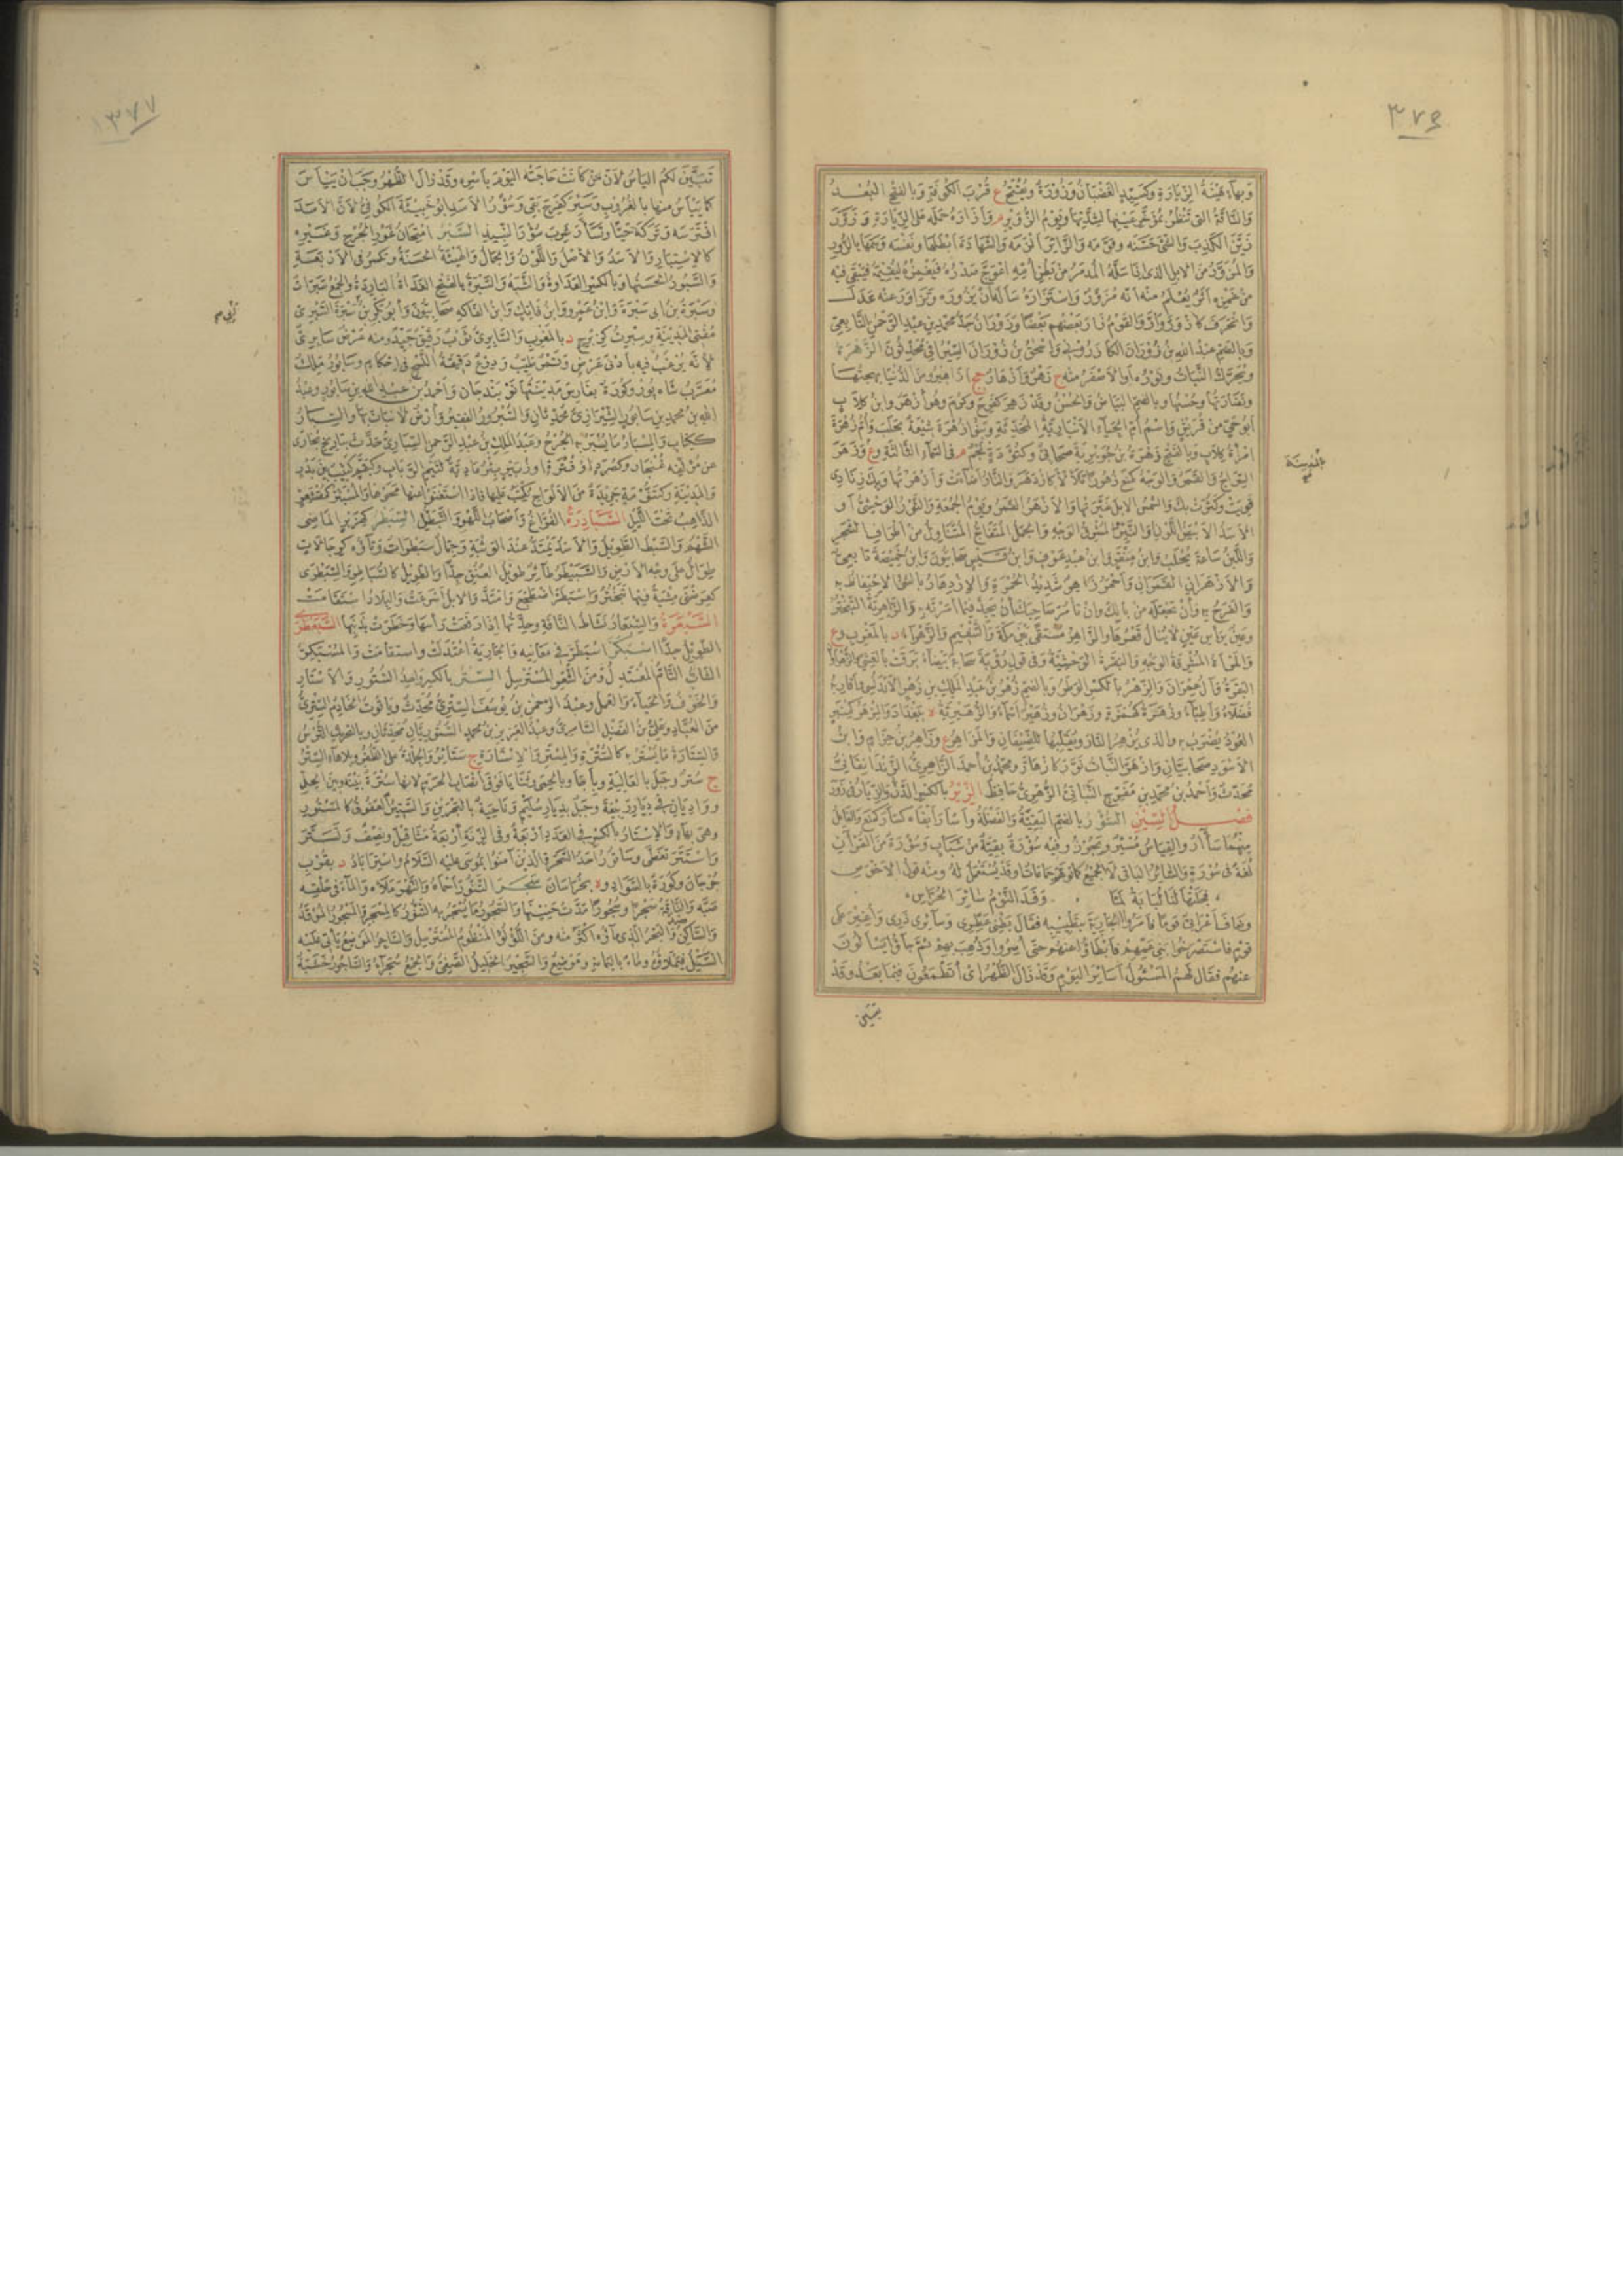 ٣٧٦
وبهاء هيئة الزيارة وكسيد الغضبان وزورة ويفتح ع قرب الكوفة وبالفتح البعد
والناقة التى تنظر بمؤخر عينها لشدتها ويوم الزوير م وأزاره حمله على الزيارة وزور
زين الكذب والشئ حسنه وقومه والزائر أكرمه والشهادة أبطلها ونفسه وسمها بالزور
والمزور من الابل الذى اذا سله المذمر من بطن أمه اعوج صدره فيغمزه ليقيمه فيبقى فيه
من غمزه أثر يعلم منه أنه مزور واستزاره سأله أن يزوره وتزاور عنه عدل
وانحرف كازور وازوار والقوم زار بعضهم بعضا وزوران جد محمد بن عبد الرحمن التابعى
وبالضم عبد الله بن زوران الكازرونى واسحق بن زوران السيرافى محدثون الزهرة
ويحرك النبات ونوره أو الاصفر منه ج زهر وأزهار جج أزاهير ومن الدنيا بهجتها
ونضارتها وحسنها وبالضم البياض والحسن وقد زهر كفرح وكرم وهو أزهر وابن كلاب
أبو حى من قريش واسم أم الحياء الانبارية المحدثة وبنو زهرة شيعة بحلب وأم زهرة
امرأة كلاب وبالفتح زهرة بن جويرية صحابى وكتؤدة نجم م فى السماء الثالثة وع وزهر
السراج والقمر والوجه كمنع زهورا تلألأ كازدهر والنار أضاءت وأزهرتها وبك زنادى
قويت وكثرت بك والشمس الابل غيرتها والازهر القمر ويوم الجمعة والثور الوحشى أو
الاسد الابيض اللون والنير المشرق الوجه والجمل المتفاج المتناول من أطراف الشجر
واللبن ساعة يحلب وابن منقر وابن عبد عوف وابن قيس صحابيون وابن خميصة تابعى
والازهران القمران وأحمر زاهر شديد الحمرة والازدهار بالشئ الاحتفاظ به
والفرح به وأن تجعله من بالك وأن تأمر صاحبك أن يجد فيما أمرته والزاهرية التبختر
وعين برأس عين لاينال قعرها والزاهر مستقى بين مكة والتنعيم والزهراء د بالمغرب وع
والمرأة المشرقة الوجه والبقرة الوحشية وفى قول رؤبة سحابة بيضاء برقت بالعشى والزهراوان
البقرة وآل عمران والزهر بالكسر الوطر وبالضم زهر بن عبد الملك بن زهر الاندلسى وأقاربه
فضلاء وأطباء وزهرة كهمزة وزهران وزهير أسماء والزهيرية ة ببغداد والمزهر كمنبر
العود يضرب به والذى يزهر النار ويقلبها للضيفان والمزاهر ع وزاهر بن حزام وابن
الاسود صحابيان وازهر النبات نور كازهار ومحمد بن أحمد الزاهرى الزندانقانى
محدث وأحمد بن محمد بن مفرج النباتى الزهرى حافظ الزير بالكسر الدن والزيار فى زور
فصل السين السؤر بالضم البقية والفضلة وأسأر أبقاه كسأر كمنع والفاعل
منهما سأآر والقياس مسئر ويجوز وفيه سؤرة بقية من شباب وسؤرة من القرآن
لغة فى سورة والسائر الباقى لا الجميع كما توهم جماعات وقد يستعمل له ومنه قول الاحوص
فجلتها لنا لبابة لما وقذ النوم سائر الحراس
وضاف أعرابى قوما فأمروا الجارية بتطييبه فقال بطنى عطرى وسائرى ذرى وأغير على
قوم فاستصرخوا بنى عمهم فأبطأوا عنهم حتى أسروا وذهب بهم ثم جاؤا يسألون
عنهم فقال لهم المسئول أسائر اليوم وقد زال الظهر أى أتطمعون فيما بعد وقد
تبين
المدينة
١٣٧٧
تبين لكم اليأس لأن من كانت حاجته اليوم بأسره وقد زال الظهر وجب أن ييأس
كما ييأس منها بالغروب وسئر كفرح بقى وسؤر الاسد أبو خبيئة الكوفى لأن الاسد
افترسه وتركه حيا وتسأر شرب سؤر النبيذ السبر امتحان غور الجرح وغيره
كالاستبار والاسد والاصل واللون والجمال والهيئة الحسنة ويكسر فى الاربعة
والمسبور الحسنها وبالكسر العداوة والشبه والسبرة بالفتح الغداة الباردة والجمع سبرات
وسبرة بن أبى سبرة وابن عمرو وابن فاتك وابن الفاكه صحابيون وأبو بكر بن سبرة السبرى
مفتى المدينة وسبرت كبرج د بالمغرب والسابرى ثوب رقيق جيد ومنه عرض سابرى
لأنه يرغب فيه بأدنى عرض وتمر طيب ودرع دقيقة النسج فى احكام وسابور ملك
معرب شاه پور وكورة بفارس مدينتها نوبندجان وأحمد بن عبد الله بن سابور وعبد
الله بن محمد بن سابور الشيرازى محدثان والسبرور الفقير وأرض لا نبات بها والسبار
ككتاب والمسبار ما يسبر به الجرح وعبد الملك بن عبد الرحمن السبارى حدث بتاريخ بخارى
عن مؤلفه غنجار وكصرد
والمدينة وكتنومة جريدة من الالواح يكتب عليها فاذا استغنوا عنها محوها والمسبئر كمقشعر
الذاهب تحت الليل السبادرة الفراغ وأصحاب اللهو والتبطل السبطر كهزبر الماضى
الشهم والسبط الطويل والاسد يمتد عند الوثبة وجمال سبطرات وتاؤه كرجالات
طوال على وجه الارض والسبيطر طائر طويل العنق جدا والطويل كالسباطر والسبطرى
كعرضنى مشية فيها تبختر واسبطر اضطجع وامتد والابل أسرعت والبلاد استقامت
السبعرة والسبعار نشاط الناقة وحدتها اذا رفعت رأسها وخطرت بذنبها السبعطر
الطويل جدا اسبكر اسبطر فى معانيه والجارية اعتدلت واستقامت والمسبكر
الشاب التام المعتدل ومن الشعر المسترسل الستر بالكسر واحد الستور والاستار
والخوف والحياء والعمل وعبد الرحمن بن يوسف السترى محدث وياقوت الخادم السترى
من العباد وعلى بن الفضل السامرى وعبد العزيز بن محمد الستوريان محدثان وبالتحريك الترس
والستارة ما يستر به كالسترة والمستر والاستارة ج ستائر والجلدة على الظفر وبلا هاء الستر
ج ستر وجبل بالعالية وبأجا وبالحمى وثنايا فوق أنصاب الحرم لانها سترة بينه وبين الحل
وواديان فى ديار ربيعة وجبل بديار سليم وناحية بالبحرين والستير العفوف كالمستور
وهى بهاء والاستار بالكسر فى العدد أربعة وفى الزنة أربعة مثاقيل ونصف وتستر
واستتر تغطى وساتور أحد السحرة الذين آمنوا بموسى عليه السلام واستراباذ د بقرب
جرجان وكورة بالسواد وة بخراسان سجر التنور أحماه والنهر ملأه والماء فى حلقه
صبه والناقة سجرا وسجورا مدت حنينها والسجور ما يسجر به التنور كالمسجر والمسجور الموقد
والساكن ضد والبحر الذى ماؤه أكثر منه ومن اللؤلؤ المنظوم المسترسل والساجر الموضع يأتى عليه
السيل فيملؤه وماء باليمامة وموضع والسجير الخليل الصفى والجمع سجراء والساجور خشبة